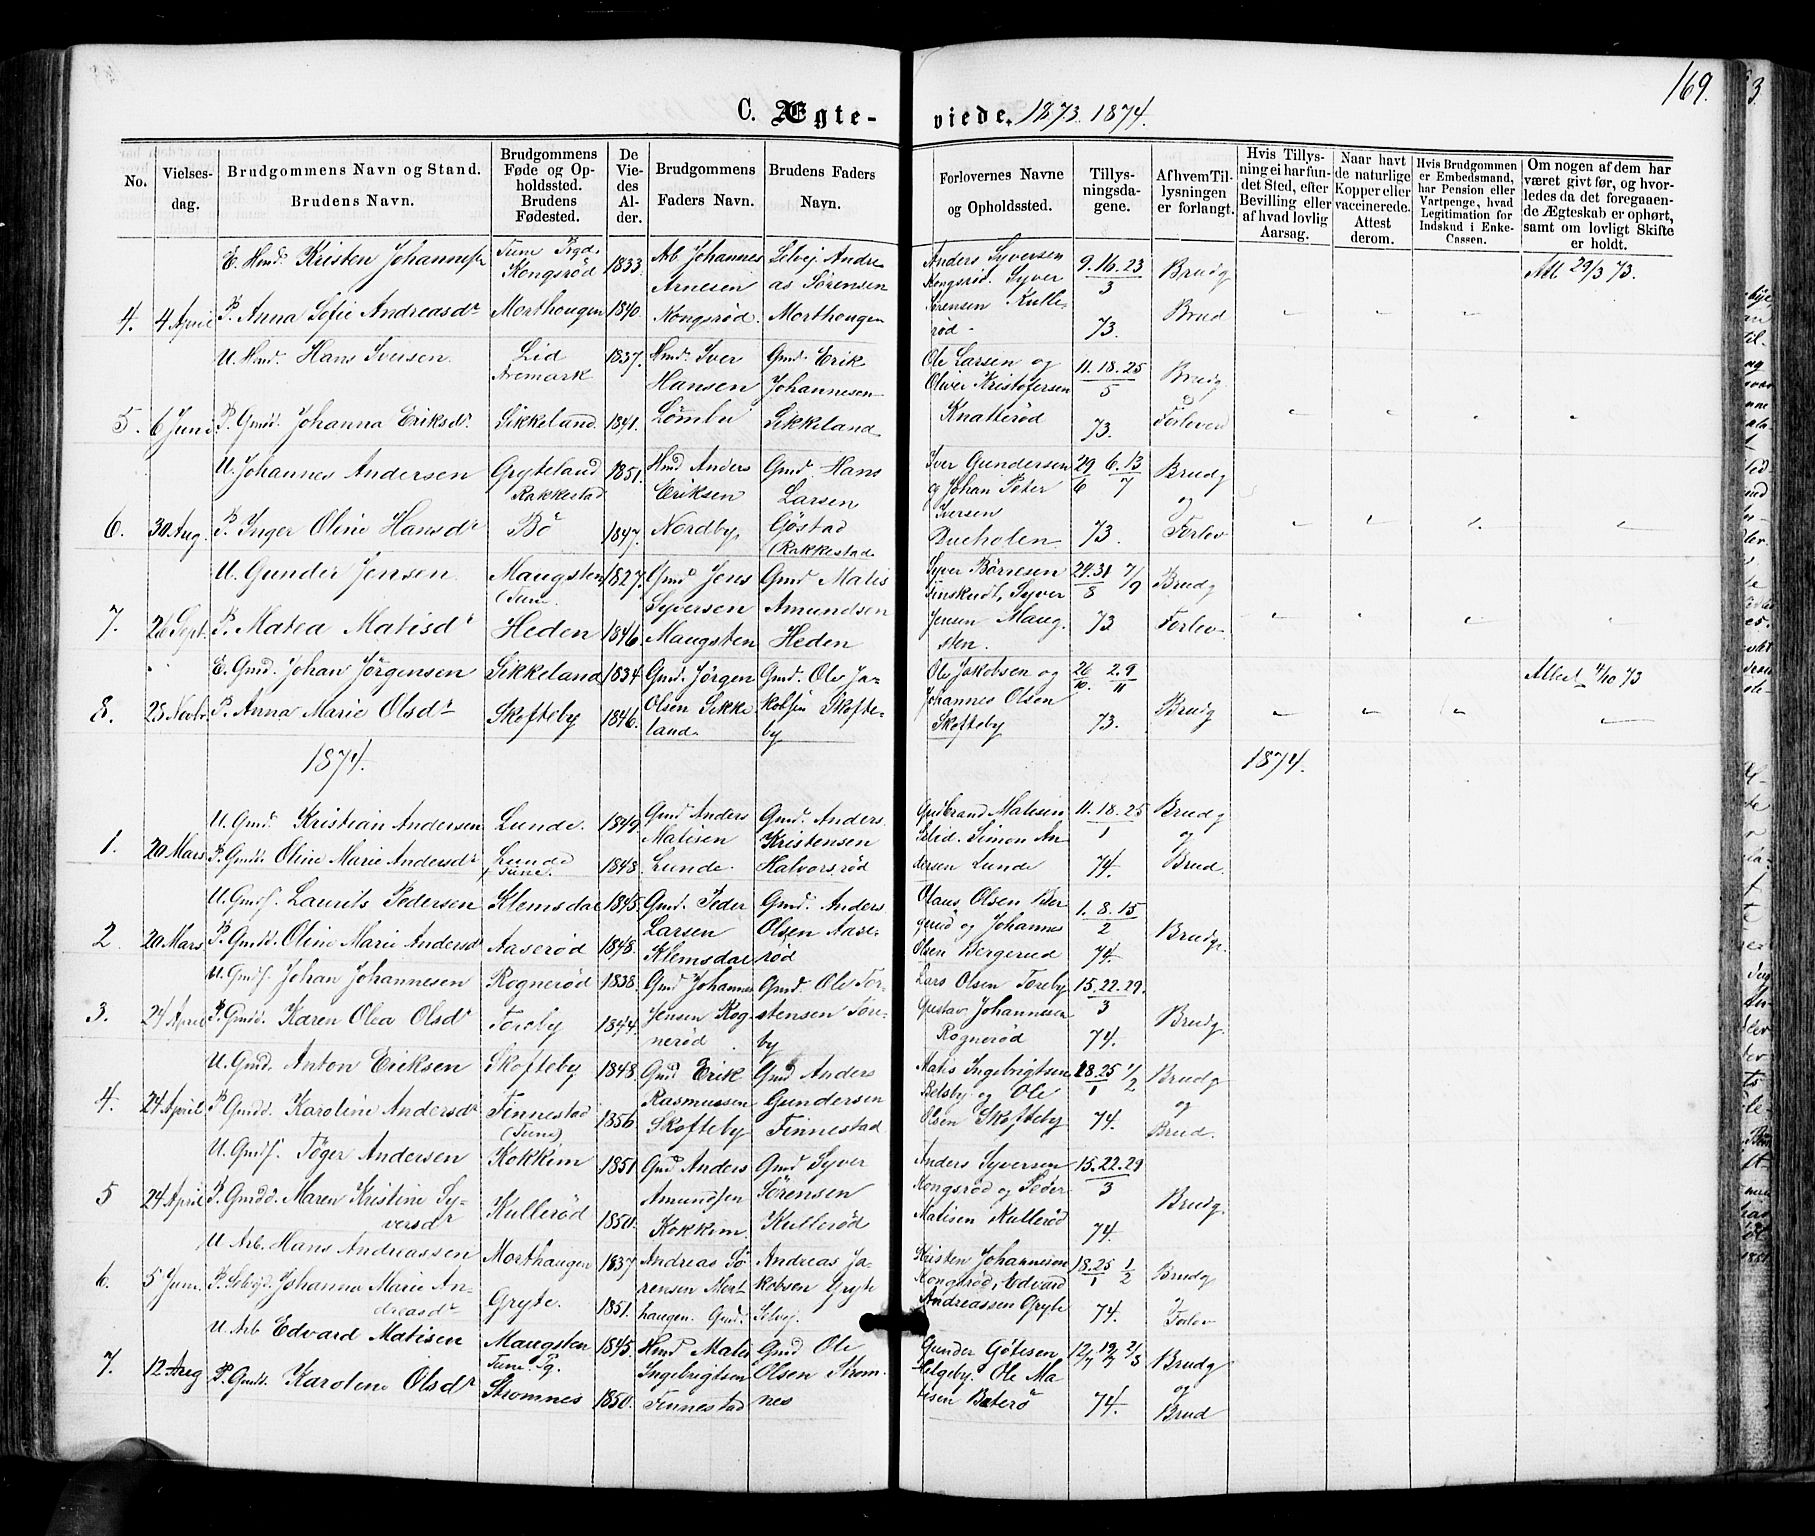 169.
C. Ægte- viede. 1873. 1874.
No.
Vielses-
dag.
Brudgommens Navn og Stand.
Brudens Navn.
Brudgommens
Føde og Op-
holdssted.
Brudens
Fødested.
De
Vie-
des
Al-
der.
Brudgommens
Faders Navn.
Brudens Faders
Navn.
Forlovernes Navne
og Opholdssted.
Tillys-
ningsda-
gene.
Af hvem Til-
lysningen
er forlangt.
Hvis Tillys-
ning ei har fun-
det Sted, efter
Bevilling eller
af hvad lovlig
Aarsag.
Naar havt
de naturlige
Kopper eller
vaccinerede.
Attest
derom.
Hvis Brudgommen
er Embedsmand,
har Pension eller
Vartpenge, hvad
Legitimation for
Indskud i Enke-
Cassen.
Om nogen af dem har
været givt før, og hvor-
ledes da det foregaaen-
de Ægteskab er ophørt,
samt om lovligt Skifte
er holdt.
4. 4 April
E. Hmd. Kristen Johannes
P. Anna Sofie Andreasdr
Tune Prgd.
Kongsrød
Morthougen
1833.
1840.
Arb Johannes
Arnesen
Kongsrød.
Selvej Andre
as Sørensen
Morthougen
Anders Syversen
Kongsrød. Syver
Sørensen Kulle-
rød.
9. 16. 23
3
73.
Brudg
Brud
Att 29/3 73.
5. 6 Juni
U. Hmd. Hans Iversen.
P. Gmdd. Johanna Eriksdr.
Lid
Aremark
Sikkeland.
1837.
1841.
Hmd. Iver
Hansen
Lømbu
Gmd. Erik
Johannesen
Sikkeland
Ole Larsen og
Oliver Kristofersen
Knatterød
11. 18. 25
5
73.
Brudg
o
Forlover
6. 30 Aug.
U. Johannes Andersen
P. Inger Oline Hansdr
Gryteland
Rakkestad
Bö
1851.
1847.
Hmd Anders
Eriksen
Nordby,
Gmd. Hans
Larsen
Göstad
(Rakkestad
Iver Gundersen
og Johan Peter
Iversen
Bucholen
29 6. 13
6 7
73.
Brudg
og
Forlov
7. 26 Sept.
U. Gunder Jensen.
P. Matea Matisdr
Maugsten
(Tune.
Heden
1827.
1846.
Gmd Jens
Syversen
Maugsten
Gmd Matis
Amundsen
Heden
Syver Börresen
Tinskudt, Syver
Jensen Maug-
sten.
24. 31 7/9
8
73
Brudg
Forlov
8. 23 Novbr.
E. Gmd. Johan Jörgensen
P. Anna Marie Olsdr
Sikkeland
Skofteby
1834
1846.
Gmd. Jörgen
Olsen Sikke
land.
Gmd. Ole Ja-
kobsen Skofte-
by
Ole Jakobsen og
Johannes Olsen
Skofteby
26 2. 9
10. 11
73.
Brudg
Attest 4/10 73
1874.
1874.
1. 20 Mars
U. Gmd. Kristian Andersen
P. Gmdd. Oline Marie Andersdr
Lunde.
Lunde
Tune.
1849.
1848.
Gmd Anders
Matisen
Lunde.
Gmd. Anders
Kristensen
Halvorsrød
Gudbrand Matisen
Simon An
dersen Lunde
11. 18. 25
1
74.
Brudg
og
Brud.
2. 20 Mars
U. Gmdf. Laurits Pedersen
P. Gmdd. Oline Marie Andersdr
Klemsdal
Aaserød
1845.
1848.
Gmd. Peder
Larsen
Klemsdal
Gmd. Anders
Olsen Aase-
rød
Olaus Olsen Ber
gerud og Johannes
Olsen Bergerud
1. 8. 15
2
74.
Brudg.
3. 24 April
U. Gmdf. Johan Johannesen
P. Gmdd. Karen Olea Olsdr
Rognerød
Toreby
1838.
1844.
Gmd Johannes
Jensen Rog-
nerød
Gmd. Ole Tor-
stensen Tore-
by
Lars Olsen Toreby
Gustav Johannesen
Rognerød
15. 22. 29.
3
74.
Brudg
4. 24 April
U. Gmd. Anton Eriksen
P. Gmdd. Karoline Andersdr
Skofteby
Finnestad
(Tune)
1848.
1856.
Gmd Erik
Rasmussen
Skofteby
Gmd Anders
Gundersen
Finnestad
Matis Ingebrigtsen
Belsby og Ole
Olsen Skofteby
18. 25 1/2
1
74.
Brudg
og
Brud.
5 24 April
U. Gmdf. Töger Andersen
P. Gmdd. Maren Kristine Sy-
versdr
Kokkim
Kullerød
1851
1850.
Gmd Anders
Amundsen
Kokkim.
Gmd Syver
Sörensen
Kullerød
Anders Syversen
Kongsrød og Peder
Matisen Kullerød
15. 22. 29
3
74.
Brudg.
6. 5 Juni.
U Arb. Hans Andreassen
P. Selvejd. Johanna Marie An-
dreasdr
Morthaugen
Gryte.
1837
1851.
Andreas Sö
rensen Mort
haugen. Gmd.
Andreas Ja-
kobsen Gryte
Selvej.
Kristen Johannesen
Kongsrød, Edvard
Andreassen Gryte
18. 25 1
1 2
74.
Brudg
Forlov
7. 12 Aug
U. Arb Edvard Matisen
P. Gmdd. Karoline Olsdr
Maugsten
Tune Pg.
Strømnes
1845.
1850.
Hmd Matis
Ingebrigtsen
Finnestad
Gmd Ole
Olsen Strøm-
nes
Gunder Götesen
Helgeby. Ole Ma-
tisen Baterö
12/7 19/7 2/8
74.
Brudg
og
Brud